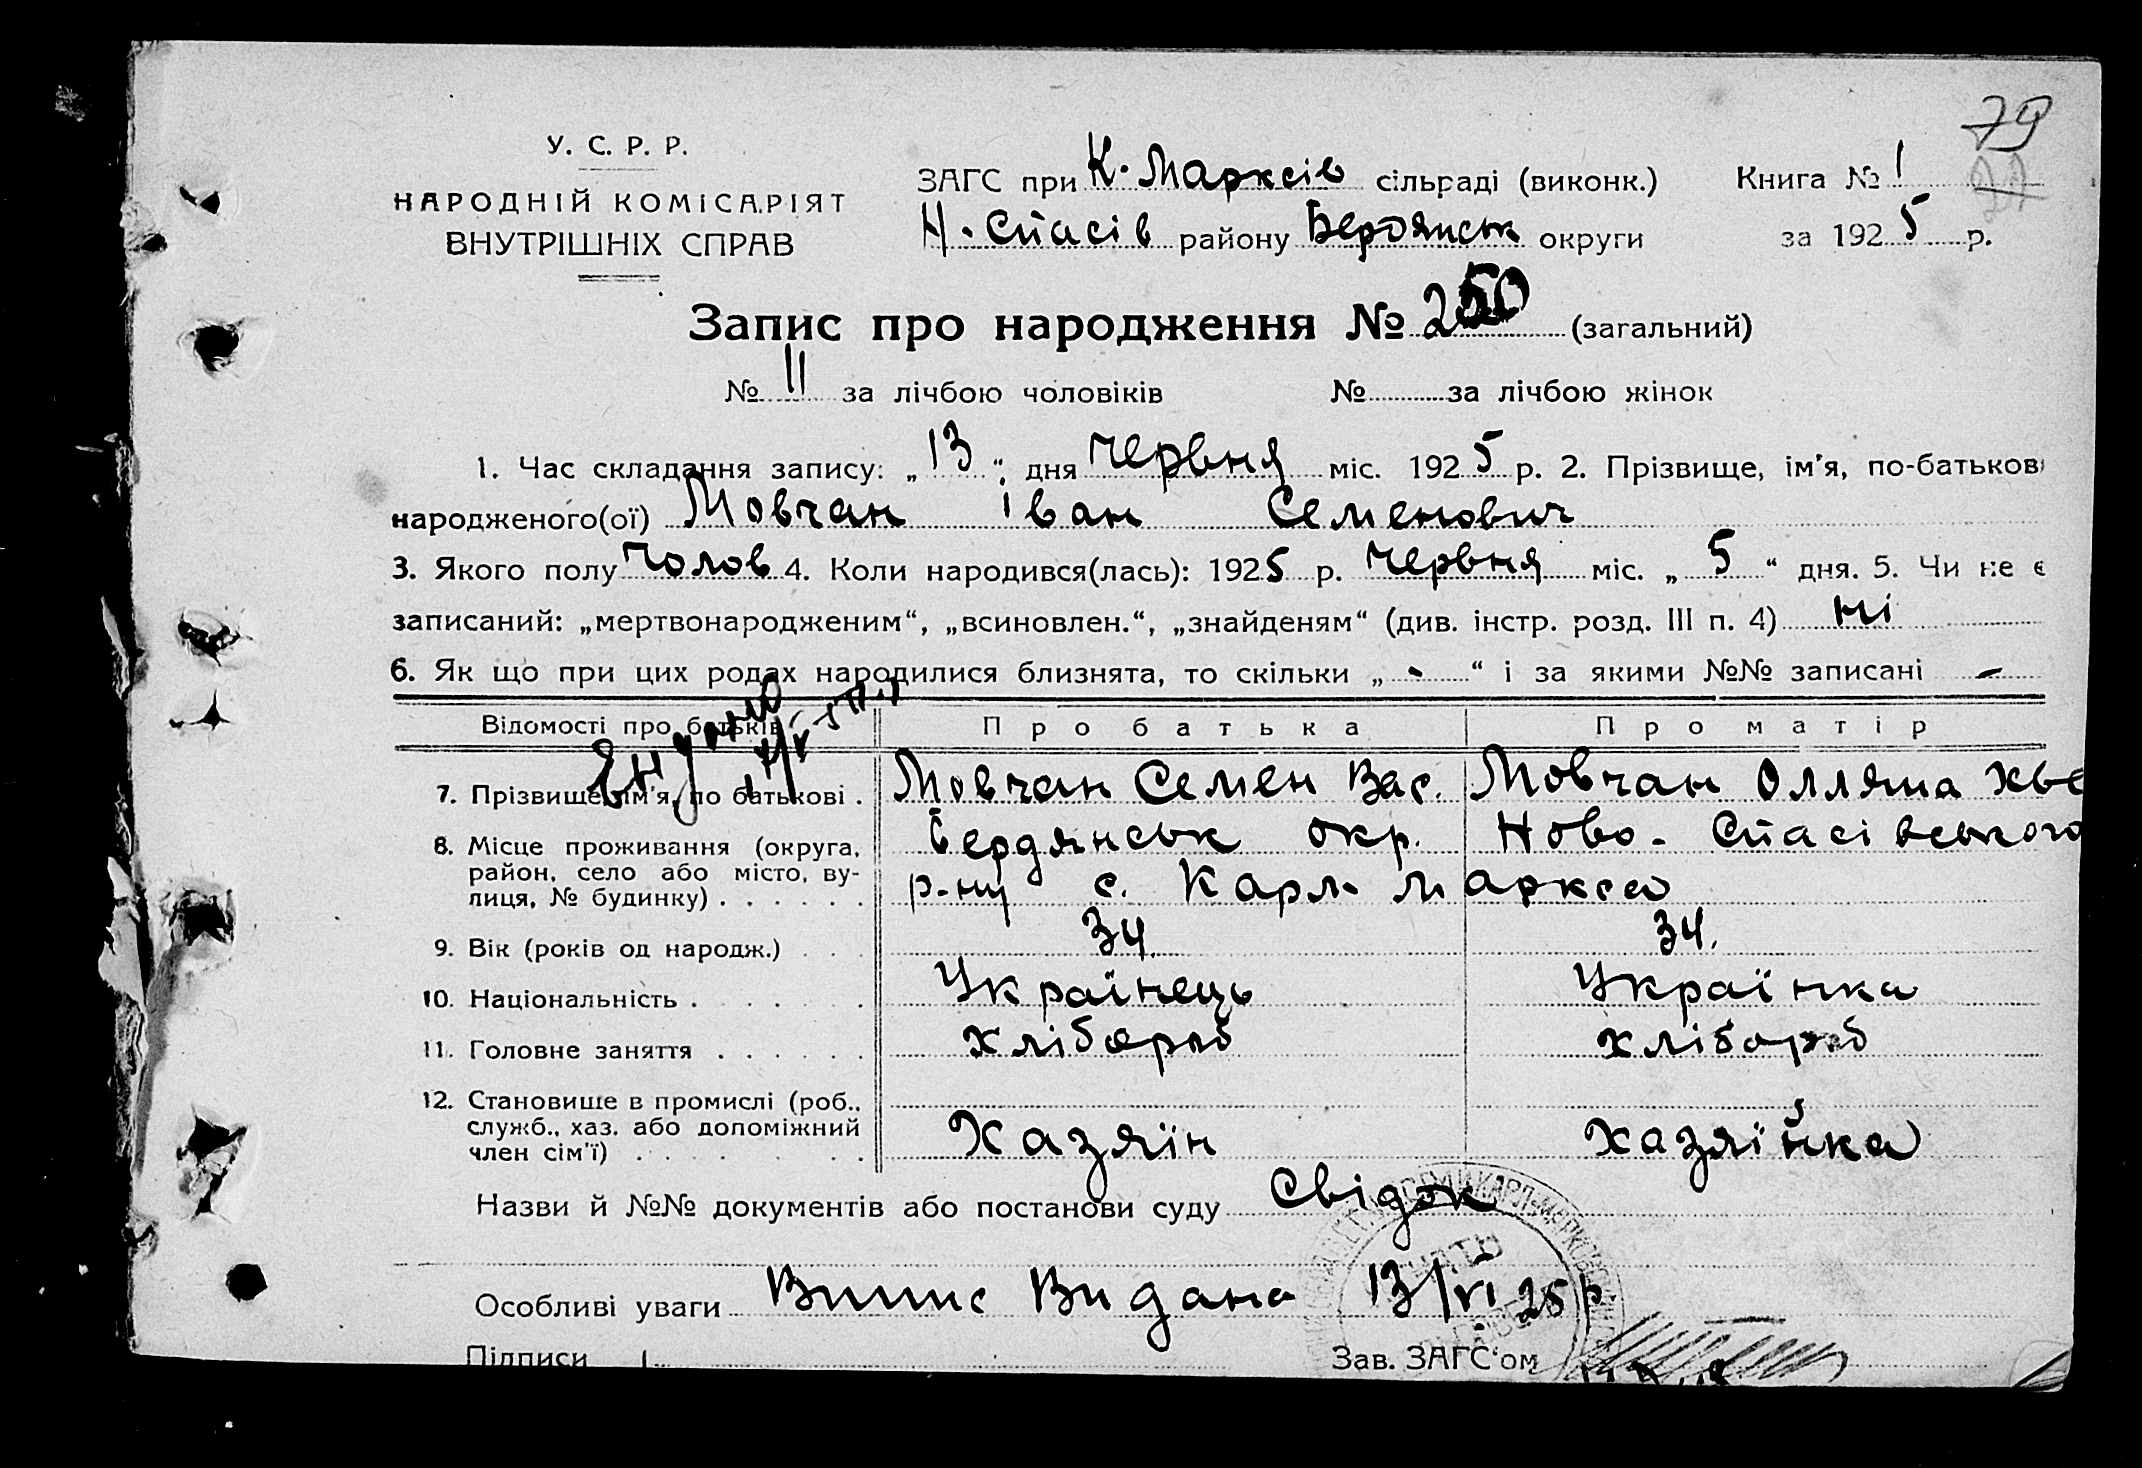 79
У. С. Р. Р.
НАРОДНІЙ КОМІСАРІЯТ
ВНУТРІШНІХ СПРАВ
ЗАГС при К. Марксів сільраді (виконк.) Книга № 1
Н. Спасів району Бердянськ округи за 1925 р.
Запис про народження № 250 (загальний)
№ 11 за лічбою чоловіків № за лічбою жінок
1. Час складання запису: „13“ дня червня міс. 1925 р. 2. Прізвище, ім'я, по-батькові
народженого(ої) Мовчан Іван Семенович
3. Якого полу чолов 4. Коли народився(лась): 1925 р. червня міс. „5“ дня. 5. Чи не є
записаний: „мертвонародженим“, „всиновлен.“, „знайденям“ (див. інстр. розд. III п. 4) ні
6. Як що при цих родах народилися близнята, то скільки „-“ і за якими №№ записані -
Відомості про батьків Про батька Про матір
7. Прізвище, ім'я, по батькові . Мовчан Семен Вас. Мовчан Олляна Хве
8. Місце проживання (округа, Бердянськ окр. Ново-Спасівського
район, село або місто, ву-
лиця, № будинку) . . . . . . р-ну с. Карл Маркса
9. Вік (років од народж.) . . . 34. 34.
10. Національність . . . . . . Українець Українка
11. Головне заняття . . . . . . хлібороб хлібороб
12. Становище в промислі (роб.,
служб., хаз. або допоміжний
член сім'ї) . . . . . . . . Хазяїн хазяїнка
Назви й №№ документів або постанови суду Свідок
Особливі уваги Випис Видана 13/VI 25 р.
Підписи Зав. ЗАГС'ом